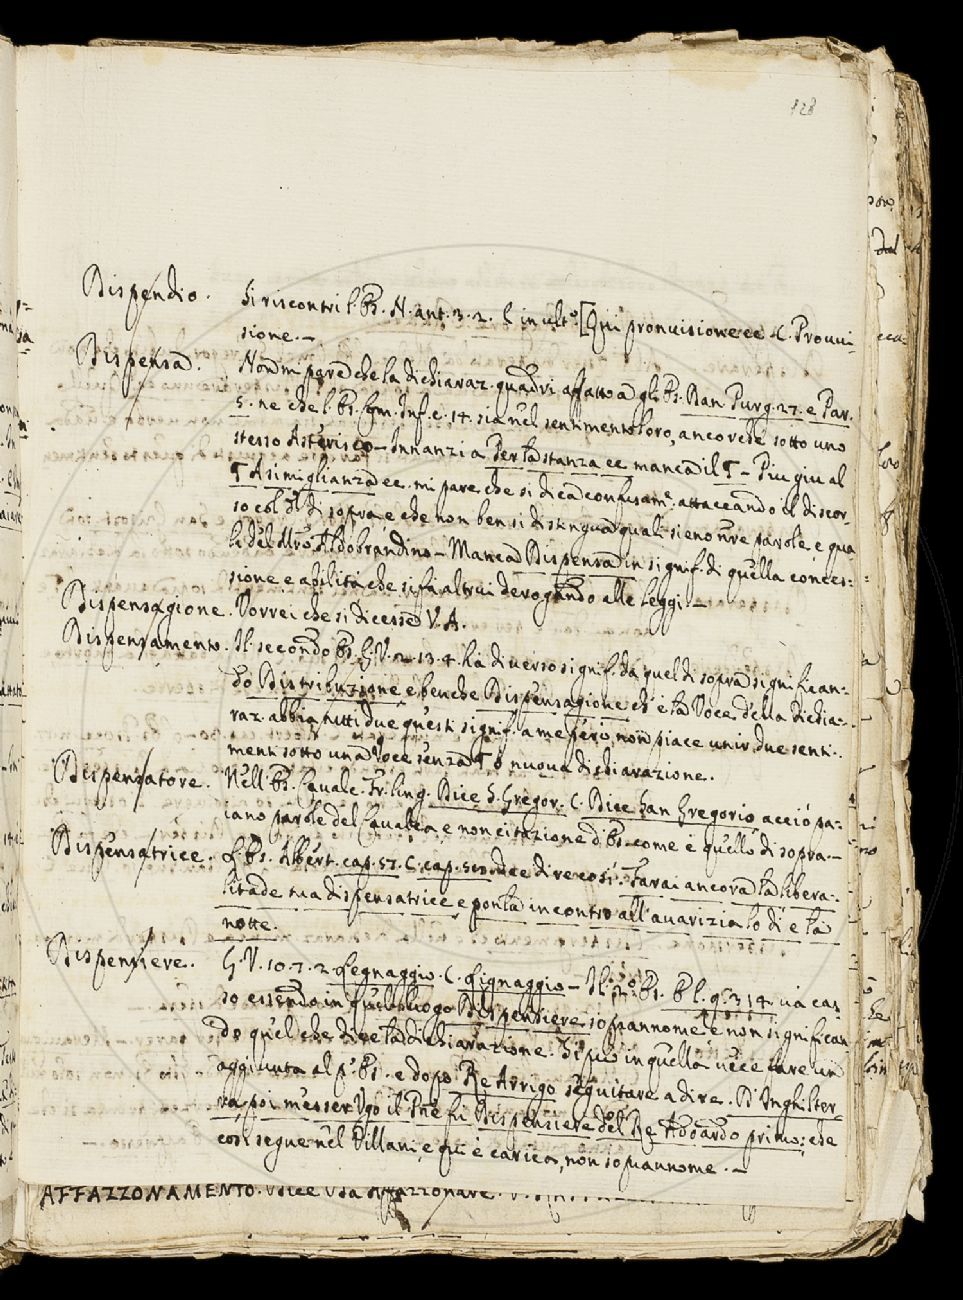 128
Dispendio. Si riscontri l'Es. N. ant. 3. 2. l in ult.o [Qui prouuisione ec C. Prouui-
sione.-
Dispensa. Non mi pare che la dichiaraz. quadri affatto a gli Es. Dan. Purg. 27. e Par.
5. ne che l'Es. Com. Inf. c. 14. sia nel sentimento loro, ancorche sotto uno
stesso Asterisco - Innanzi a Per la stanza ec manca il ¶ - Piu giu al
¶ A simiglianza ec. mi pare che si dica confusam.e attaccando il discor-
so col di sopra e che non ben si distingua quali sieno nre parole, e qua
li del Mro Aldobrandino - Manca Dispensa in signif. di quella conces-
sione e abilità che si fa altrui derogando alle leggi -
Dispensagione. Vorrei che si dicesse V. A.
Dispensamento. Il secondo Es. G. V. 2. 13. 4. ha diuerso signif. da quel di sopra significan-
do Distribuzione, e benche Dispensagione ch'è la Voce della dichia-
raz. abbia tutti due questi signif. a me però non piace unir due senti-
menti sotto una Voce senza ¶ o nuoua dichiarazione.
Dispensatore. Nell'Es. Caualc. Fr. ling. Dice S. Gregor. C. Dice San Gregorio acciò pa-
iano parole del Caualca, e non citazione d'Es. come è quello di sopra.-
Dispensatrice. Es. Albert. cap. 57. C. cap. dee dire così. Farai ancora la libera-
litade tua dispensatrice, e ponla incontro all'auarizia lo dì e la
notte.
Dispensiere. G. V. 10. 7. 2. legnaggio. C. lignaggio - Il p.o Es. ua cas-
so essendo in quel luogo Dispensiere sopannome, e non significan
do quel che dice la dichiarazione. Si può in quella uece fare un
aggiunta al p.o Es. e dopo Re Arrigo seguitare a dire. D'Inghilter-
ra, poi messer Ugo il Pre fu Dispensiere del Re Adoardo primo; che
così segue nel Villani, e qui è carica, non sopannome. -
AFFAZZONAMENTO.